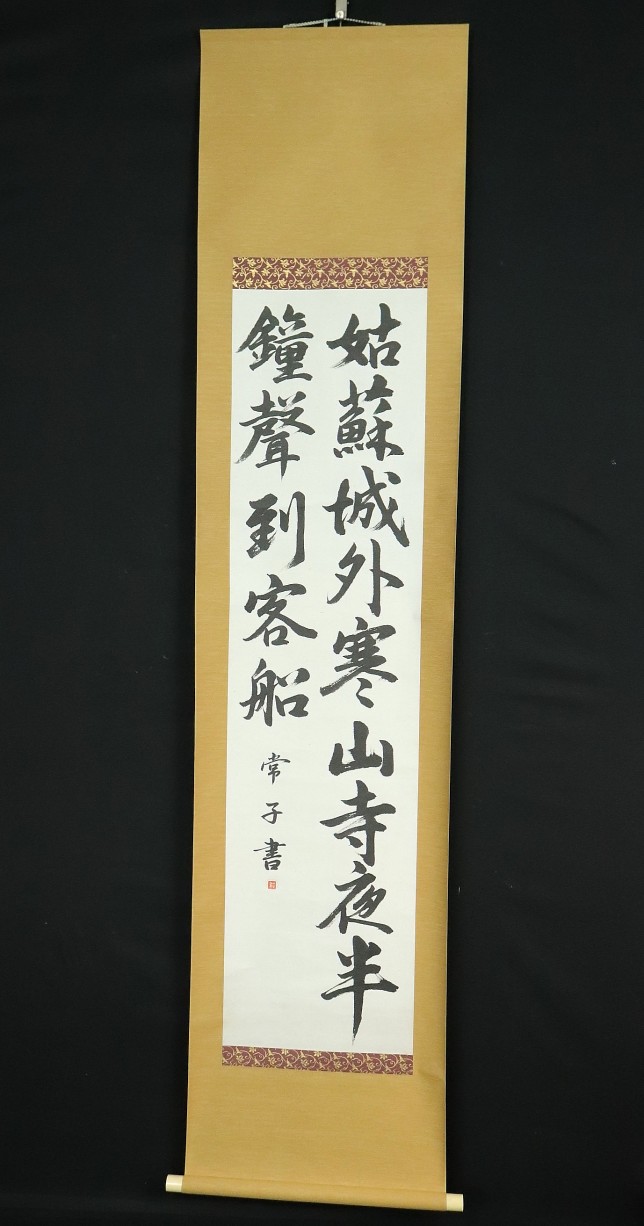 姑蘇城外寒山寺夜半
鐘聲到客船
常子書